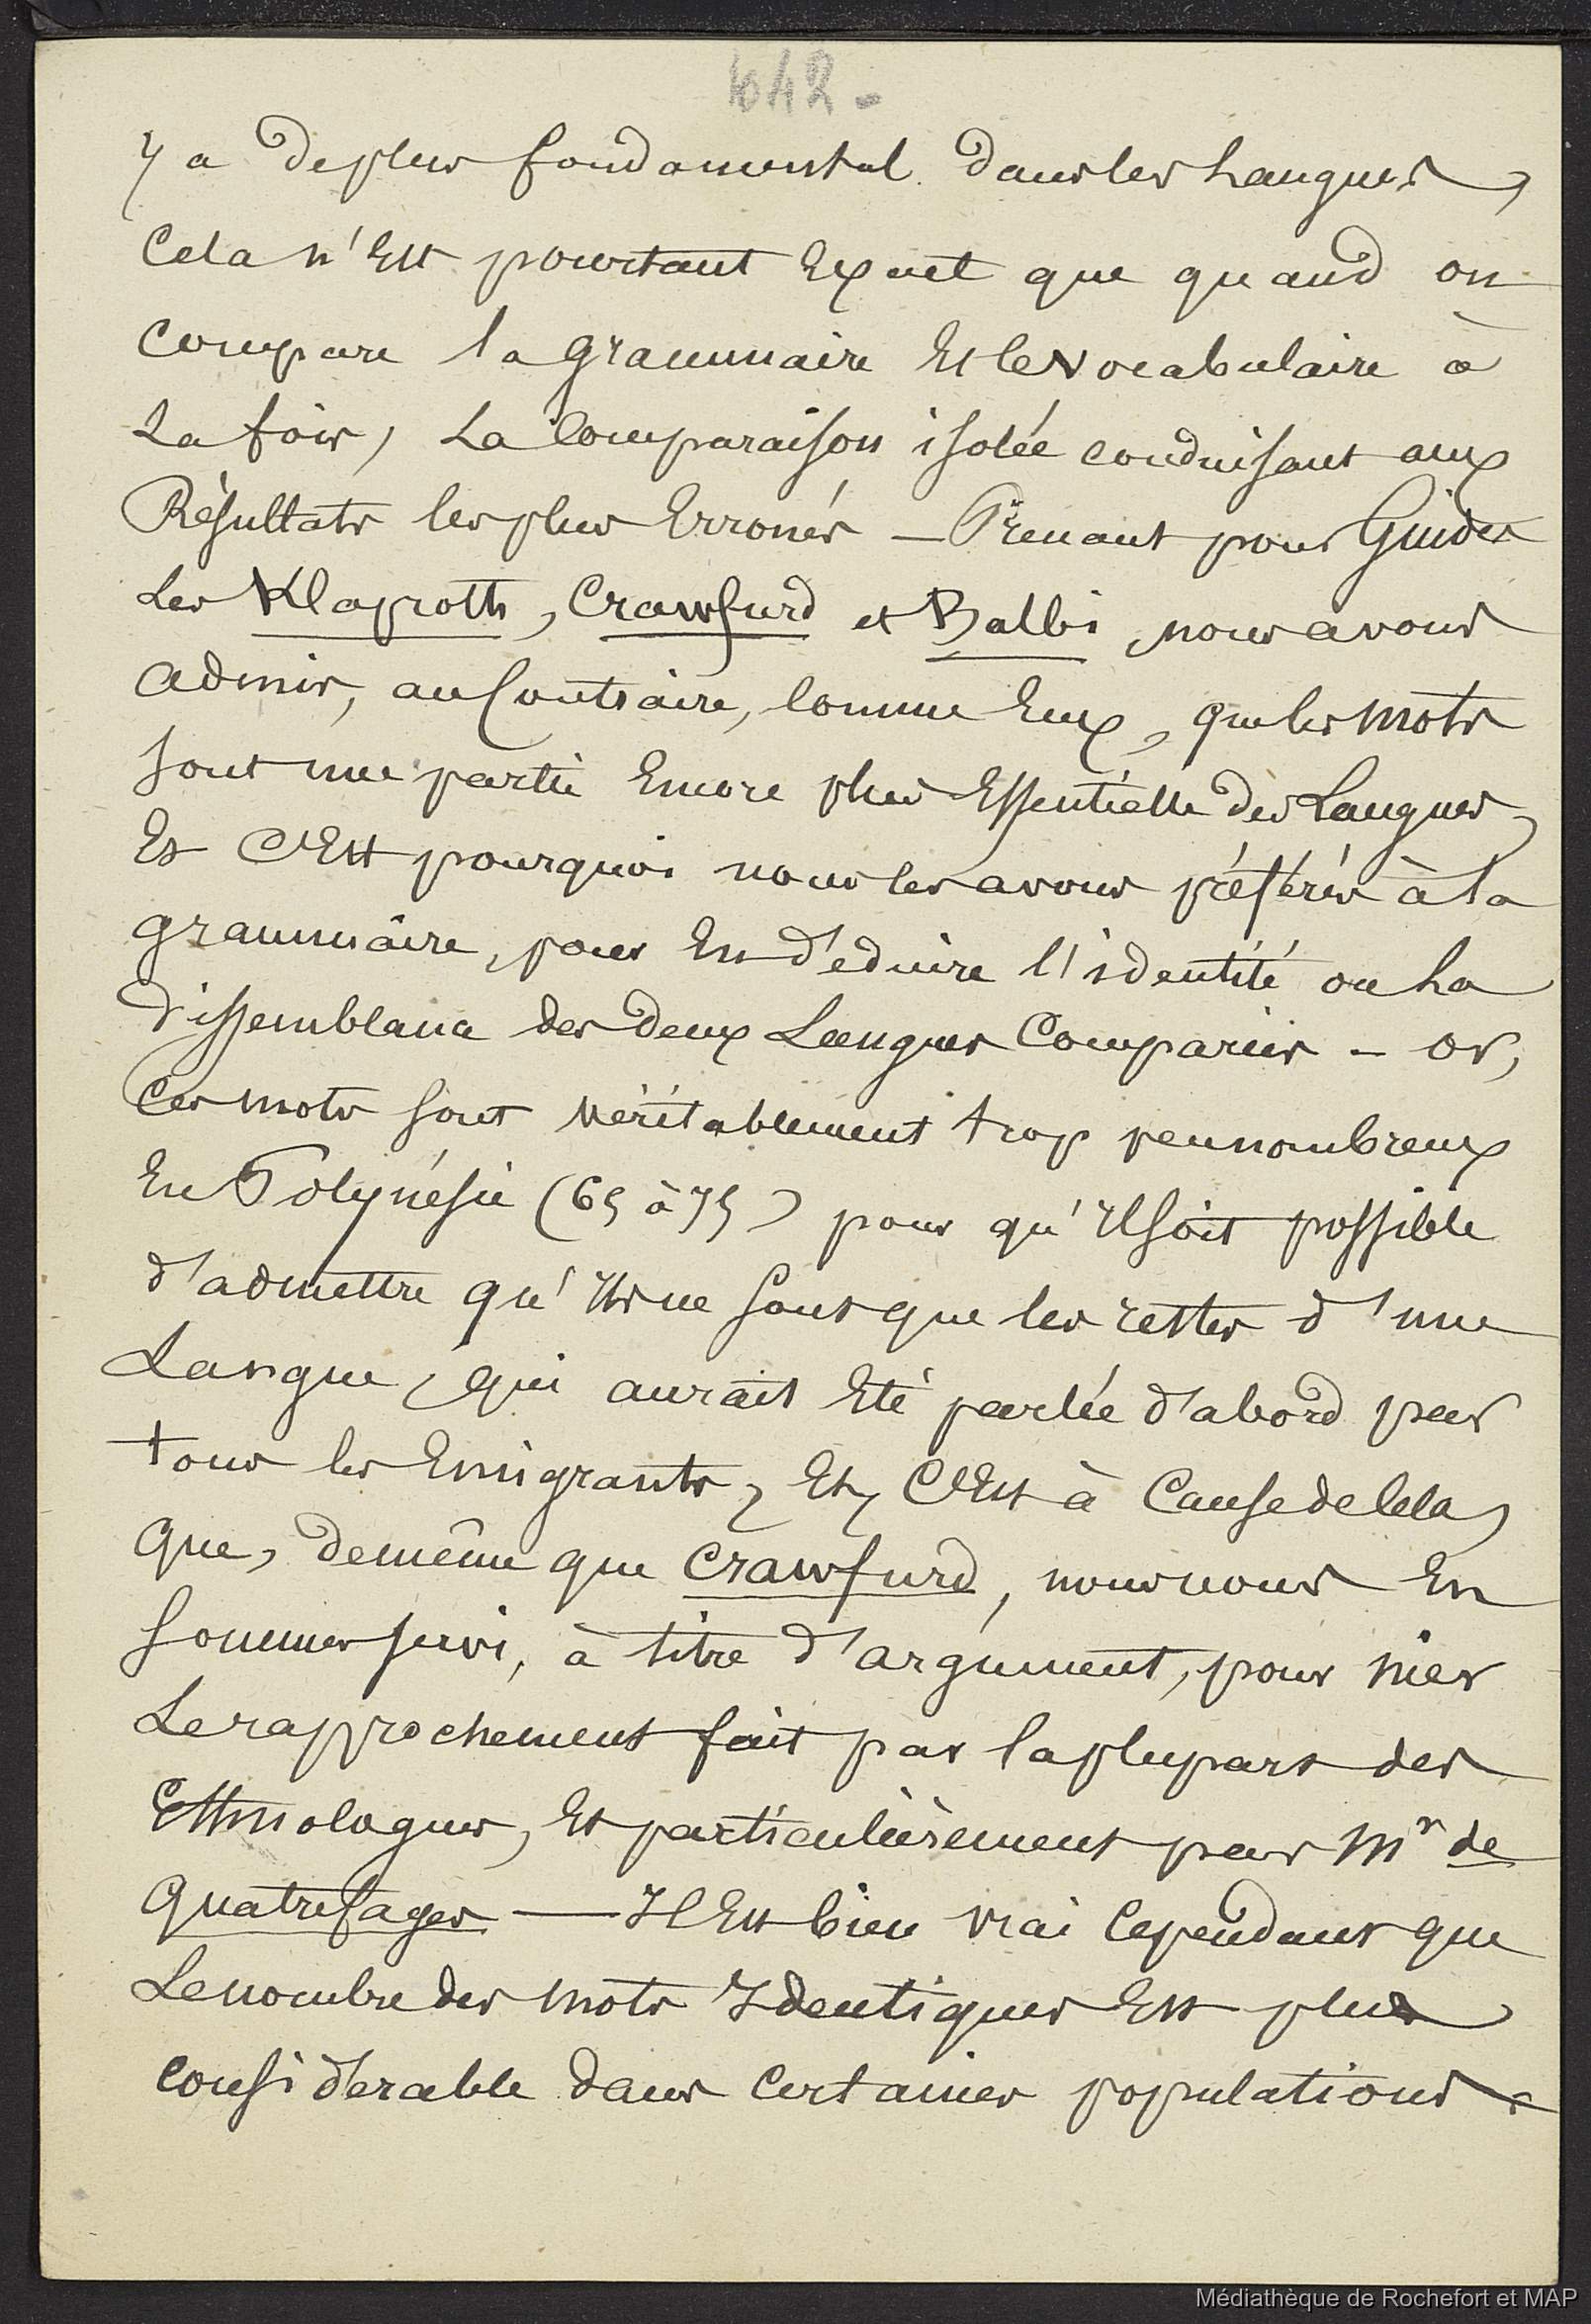 642 -
y a de plus fondamental dans les Langues,
Cela n'Est pourtant Exact que quand on
compare la grammaire Et le Vocabulaire à
La fois, La Comparaison isolée conduisant aux
Résultats les plus Erronés — Prenant pour Guides
Les Klaproth, Crawfurd et Balbi, nous avons
admis, au Contraire, Comme Eux, que les mots
sont une partie Encore plus Essentielle des Langues,
Et C'Est pourquoi nous les avons préférés à la
grammaire, pour En déduire l'identité ou La
dissemblance des deux Langues Comparées - or,
Ces mots sont véritablement trop peu nombreux
En Polynésie (65 à 75) pour qu'Il soit possible
d'admettre qu'Ils ne sont que les restes d'une
Langue, qui aurait Eté parlée d'abord par
tous les Emigrants, Et, C'Est à Cause de Cela,
que, de même que Crawfurd, nous nous En
sommes servi, à titre d'argument, pour nier
Le rapprochement fait par la plupart des
Ethnologues, Et particulièrement par Mr de
Quatrefages — Il Est bien vrai Cependant que
Le nombre des mots Identiques Est plus
considérable dans Certaines populations
Médiathèque de Rochefort et MAP